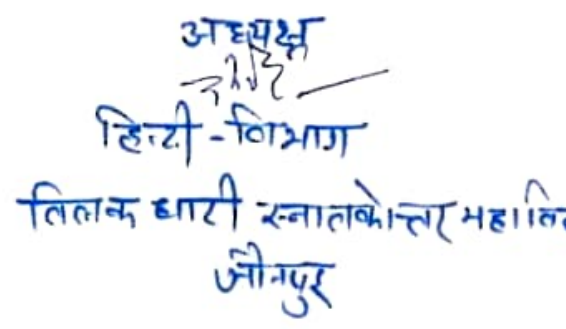 अध्यक्ष
हिन्दी - विभाग
तिलक धारी स्नातकोत्तर महावि
जौनपुर